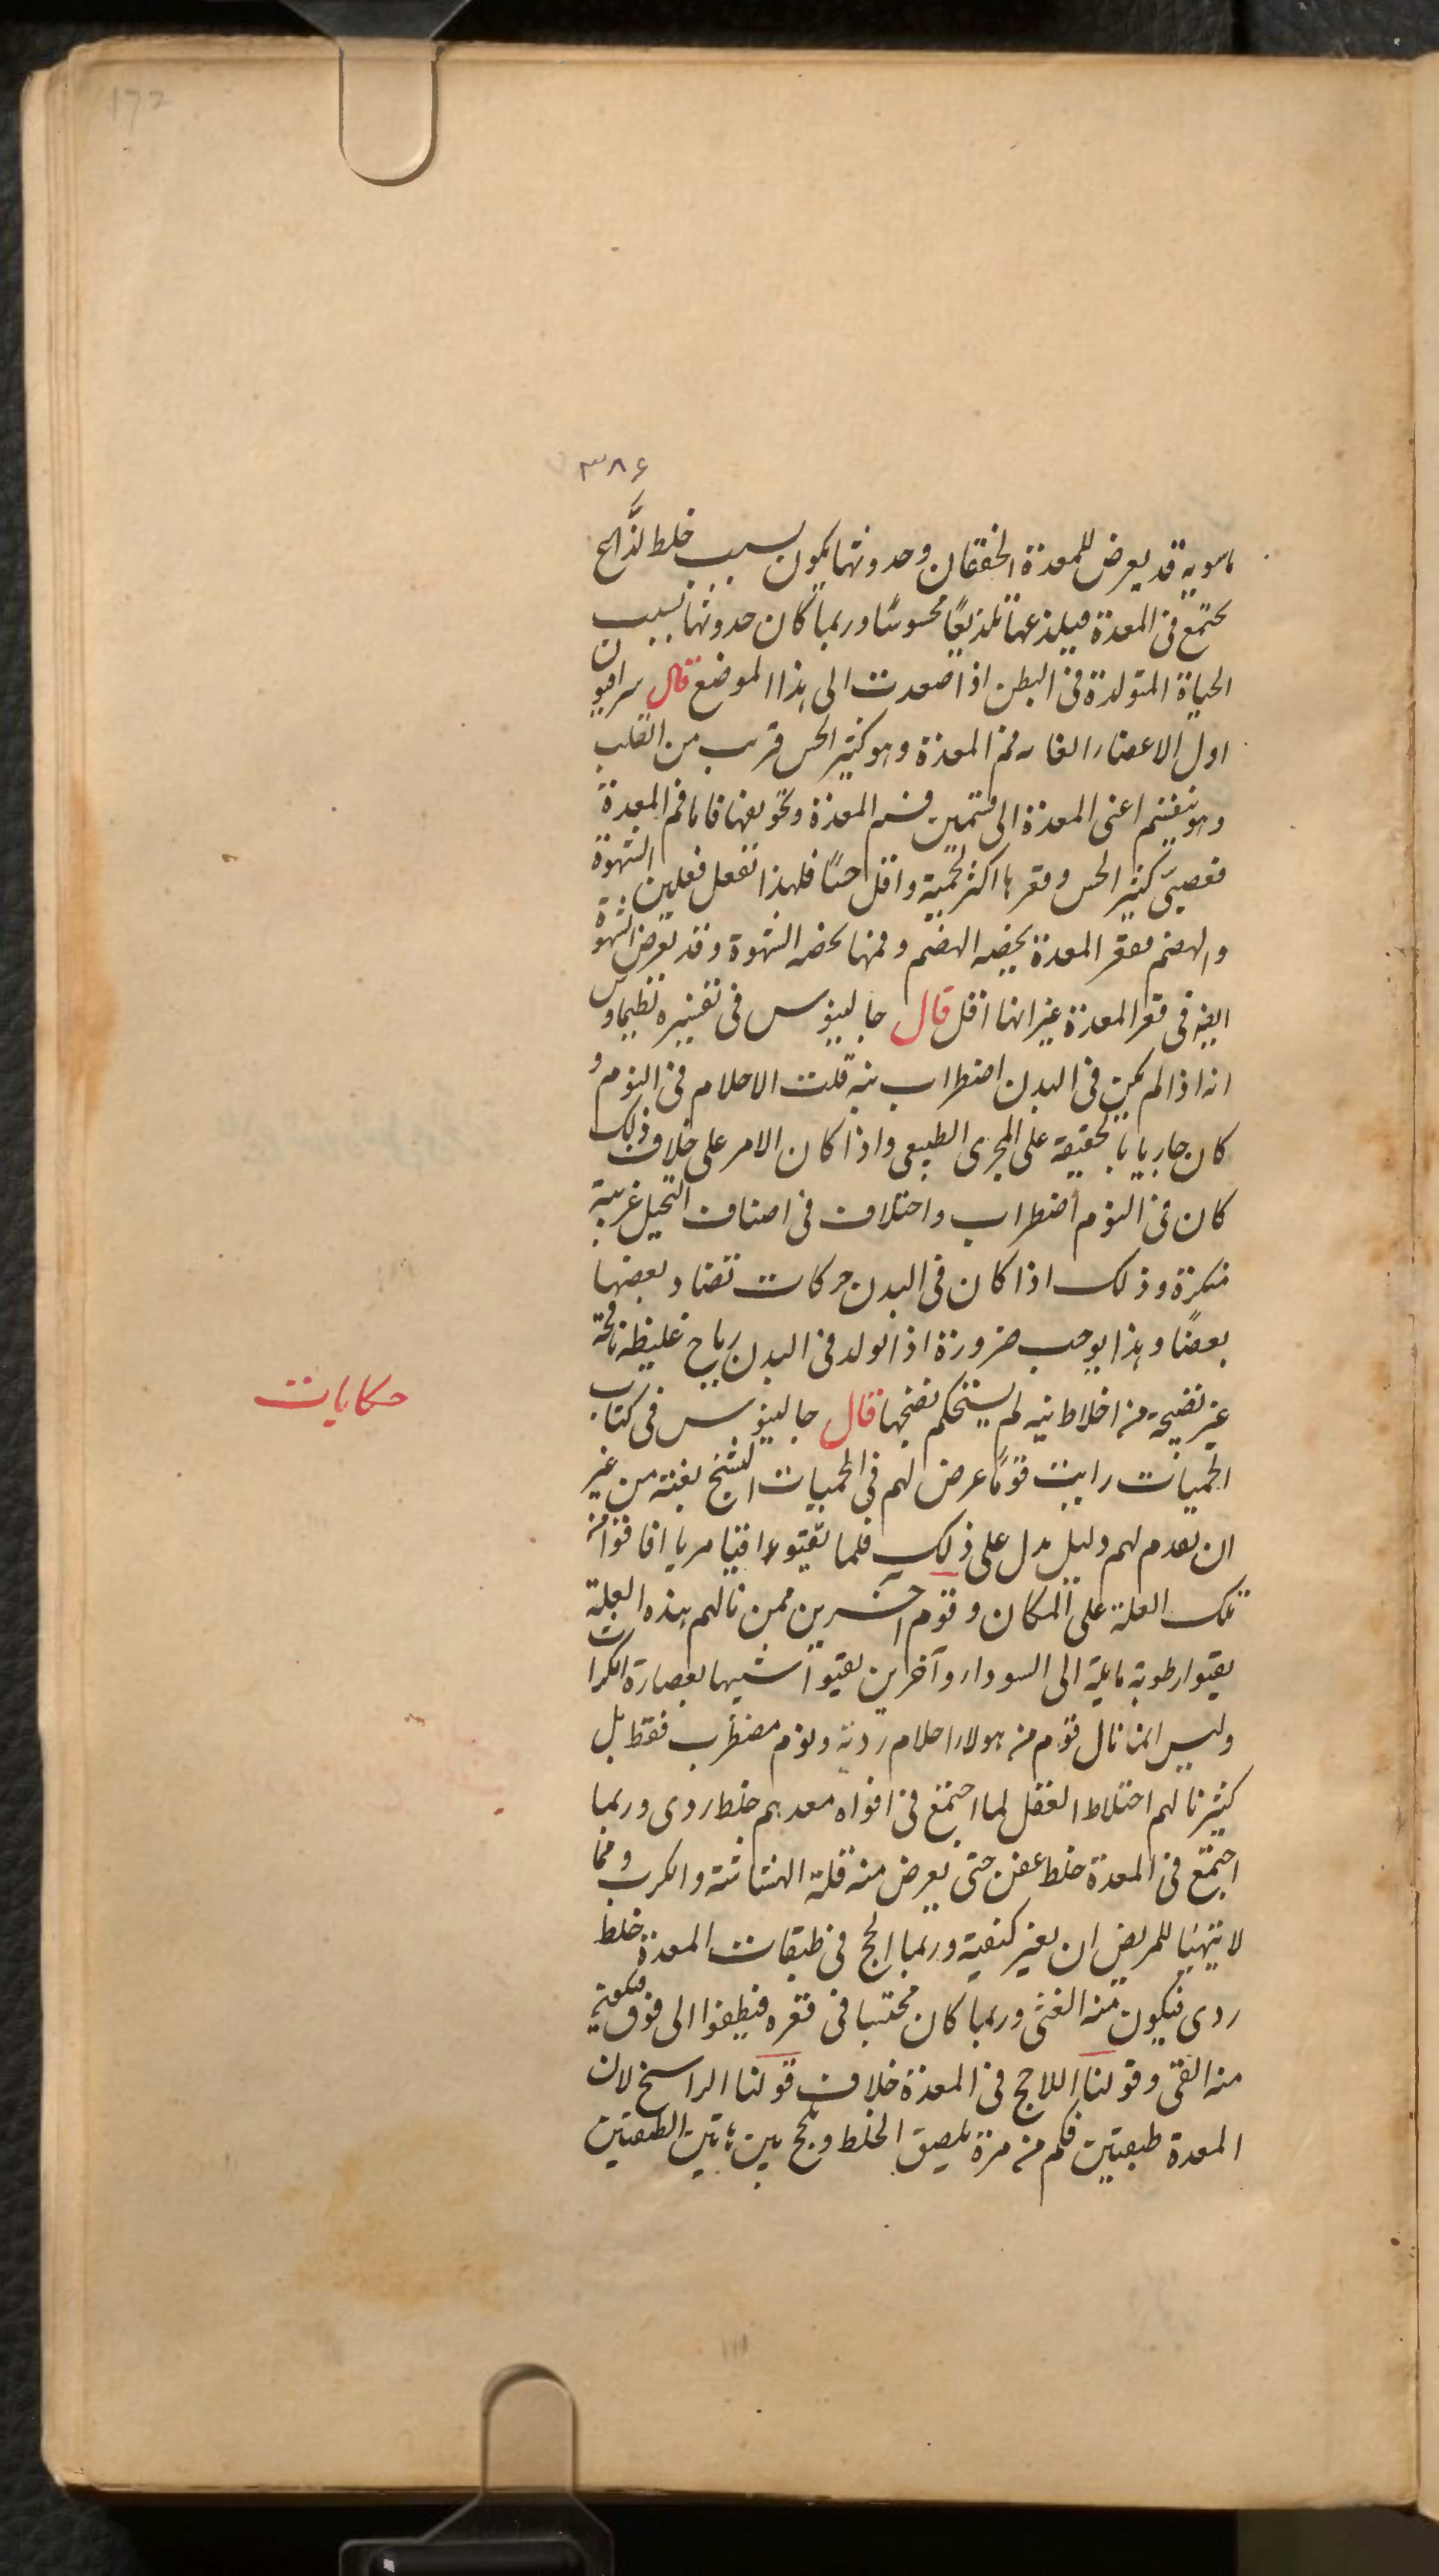 172
۳۸۶
ماسويه قد يعرض للمعدة الخفقان وحدوثها يكون بسبب خلط لذَّاع
يجتمع فى المعدة فيلذعها تلذيعًا محسوسًا وربما كان حدوثها بسبب
الحياة المتولدة فى البطن اذا صعدت الى هذا الموضع قال سرافيون
اول الاعضاء فم المعدة وهو كثير الحس قريب من القلب
وهو ينقسم اعنى المعدة الى قسمين فم المعدة وتجويفها فاما فم المعدة
فعصبىّ كثير الحس وقعرها اكثر لحمية واقل حسًا فلهذا تفعل فعلين الشهوة
والهضم فقعر المعدة يخصه الهضم وفمها يخصه الشهوة وقد يعرض الشهوة
ايضه فى قعر المعدة غير انها اقل قال جالينوس فى تفسيره لطيماوس
انه اذا لم يكن فى البدن اضطراب بته قلت الاحلام فى النوم و
كان جاريا بالحقيقة على المجرى الطبيعى واذا كان الامر على خلاف ذلك
كان فى النوم اضطراب واختلاف فى اصناف التخيل غريبة
منكرة وذلك اذا كان فى البدن حركات تضاد بعضها
بعضًا وهذا يوجب ضرورة اذا تولد فى البدن رياح غليظة نافخة
غير نضيجة من اخلاط نيه لم يستحكم نضجها قال جالينوس فى كتاب
حكايات
الحميات رايت قومًا عرض لهم فى الحميات التشنج بغتة من غير
ان تقدم لهم دليل يدل على ذلك فلما تقيوء اقيا مريا افاقوا من
تلك العلة على المكان وقوم آخرين ممن نالهم هذه العلة
تقيوا رطوبة مايلة الى السوداء وآخرين تقيوا شبيها بعصارة الكراث
وليس انما نال قوم من هولاء احلام ردية ونوم مضطرب فقط بل
كثير نالهم اختلاط العقل لما اجتمع فى افواه معدهم خلط ردى وربما
اجتمع فى المعدة خلط عفن حتى يعرض منه قلة الهشاشة والكرب ومما
لا يتهيا للمريض ان يغير كيفية وربما لحج فى طبقات المعدة خلط
ردى فيكون منه الغثى وربما كان محتبسا فى قعره فيطفوا الى فوق فيهيج
منه القى وقولنا اللاحج فى المعدة خلاف قولنا الراسخ لان
المعدة طبقتين فكم من مرة يلصق الخلط ويلحج بين هاتين الطبقتين